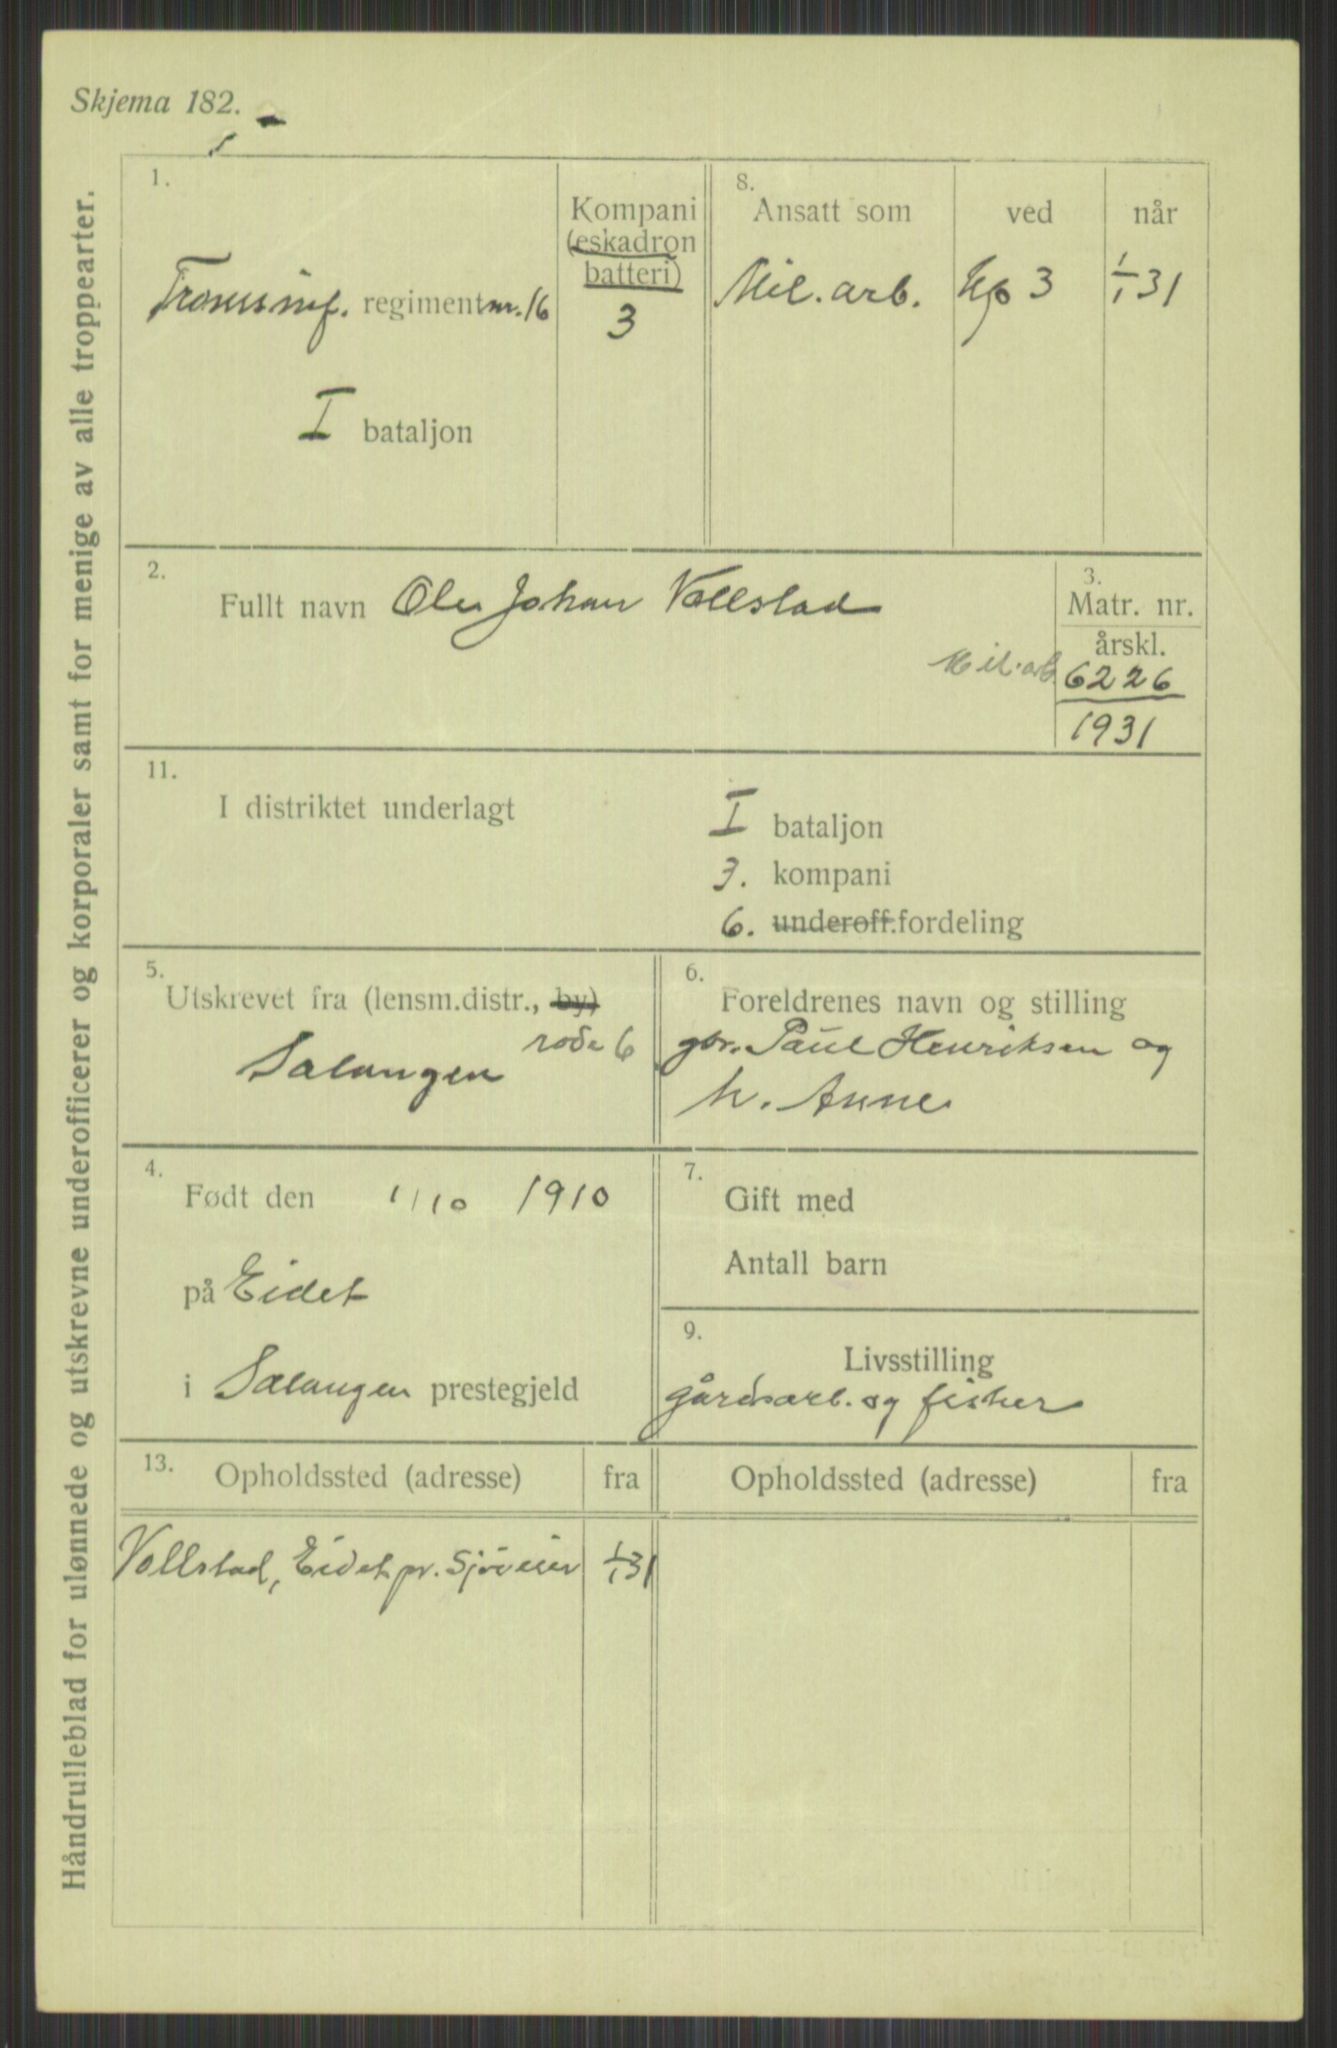 Skjema 182.
Håndrulleblad for ulønnede og utskrevne underofficerer og korporaler samt for menige av alle troppearter.
1.
Troms inf. regiment nr. 16
I bataljon
Kompani
(eskadron
batteri)
3
8.
Ansatt som ved når
Mil. arb. Kp 3 1/1 31
2.
Fullt navn Ole Johan Vollstad
Mil. arb.
3.
Matr. nr.
årskl.
6226
1931
11.
I distriktet underlagt
I bataljon
3. kompani
6. underoff.fordeling
5.
Utskrevet fra (lensm.distr., by)
rode 6
Salangen
6.
Foreldrenes navn og stilling
gbr. Paul Henriksen og
h. Anne
4.
Født den 1/10 1910
på Eidet
i Salangen prestegjeld
7.
Gift med
Antall barn
9.
Livsstilling
gårdsarb. og fisker
13.
Opholdssted (adresse) fra Opholdssted (adresse) fra
Vollstad, Eidet pr. 1/1 31